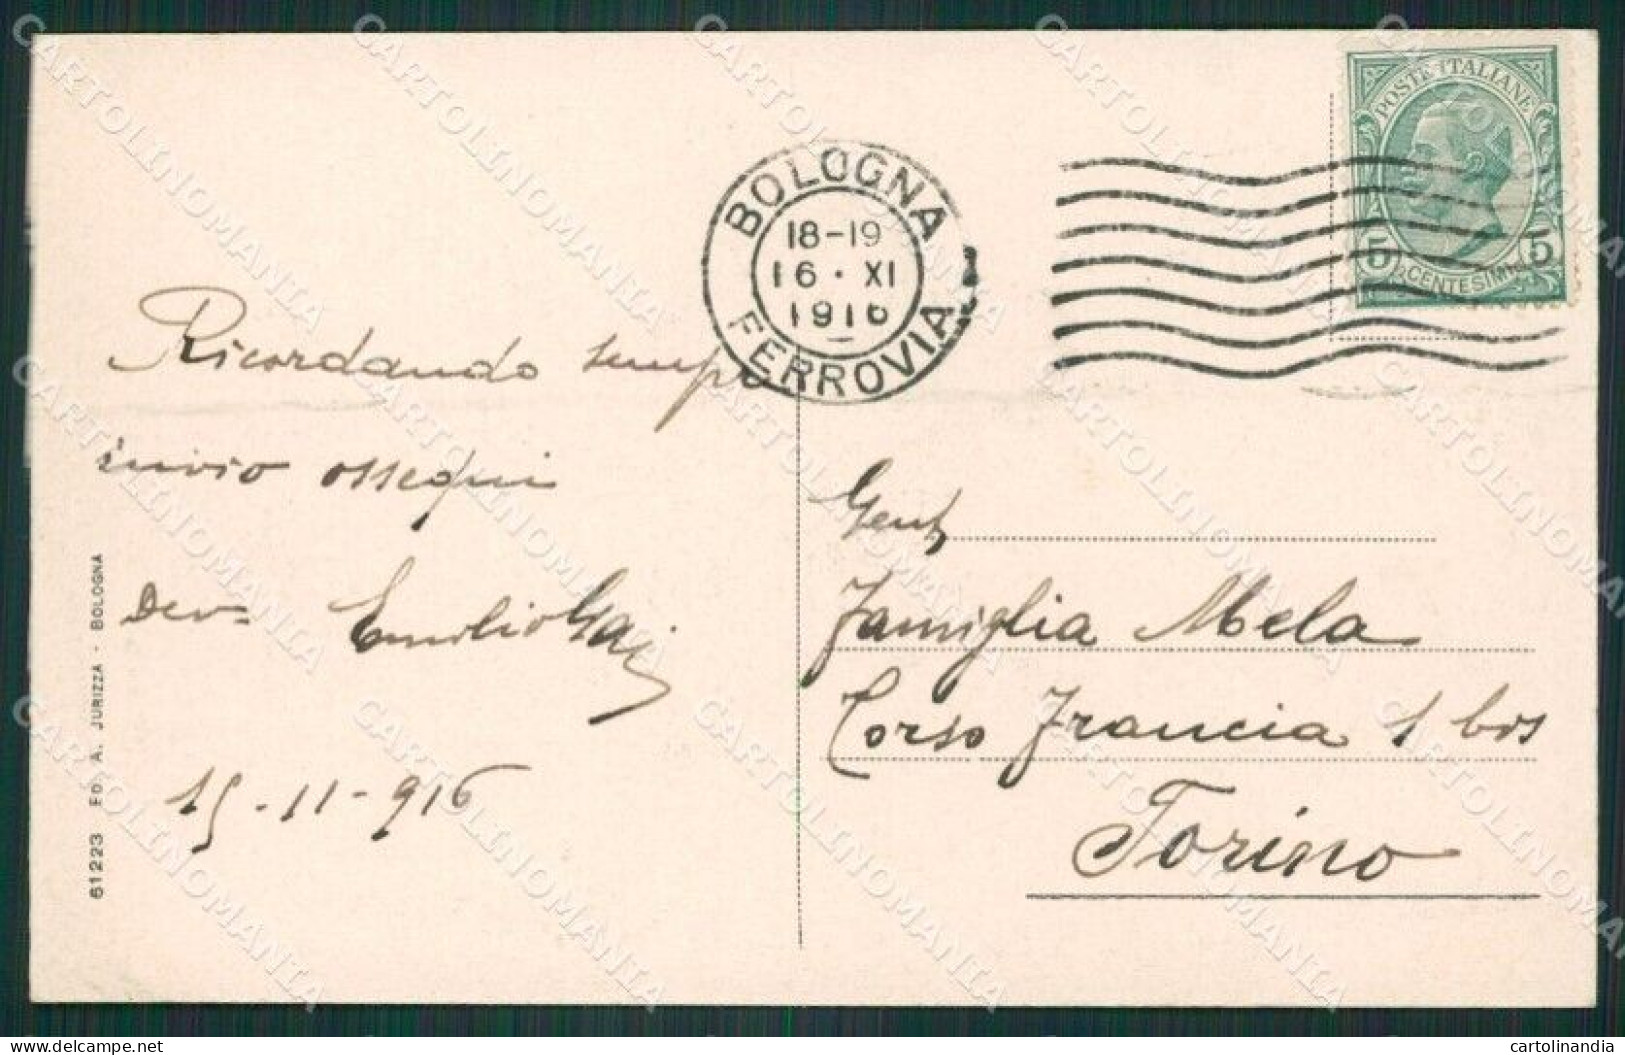 POSTE ITALIANE
5 CENTESIMI 5
BOLOGNA
18-19
16 · XI
1916
FERROVIA
Ricordando sempre
invio ossequi
Dev=
Emilio
15-11-916
Gent
Famiglia Mela
Corso Francia 1 bis
Torino
61223 Fo. A. JURIZZA - BOLOGNA
CARTOLINOMANIA
www.delcampe.net
cartolinandia